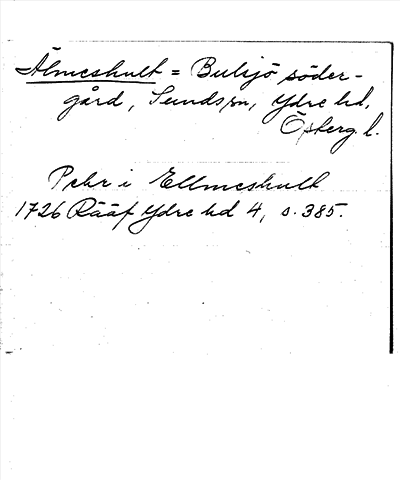 Älmeshult = Bulsjö söder-
gård, Sunds sn, Ydre hd,
Ö
Pehr i Ellmeshult
1726 Rääf Ydre hd 4, s. 385.